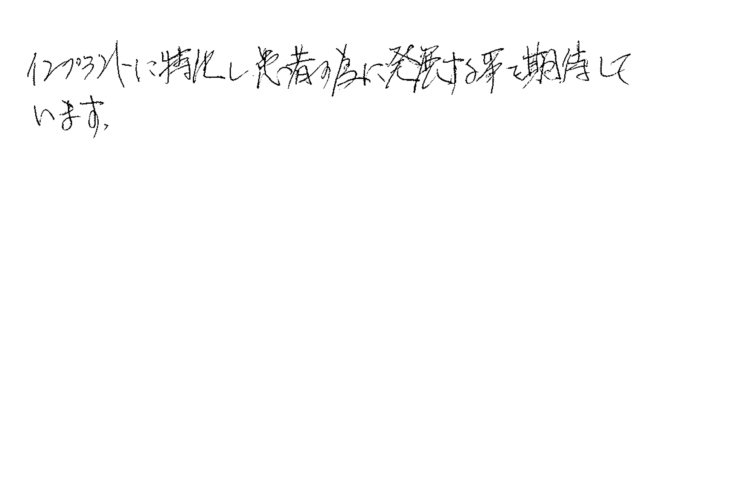 インプラントに特化し患者の為に発展する事を期待して
います。